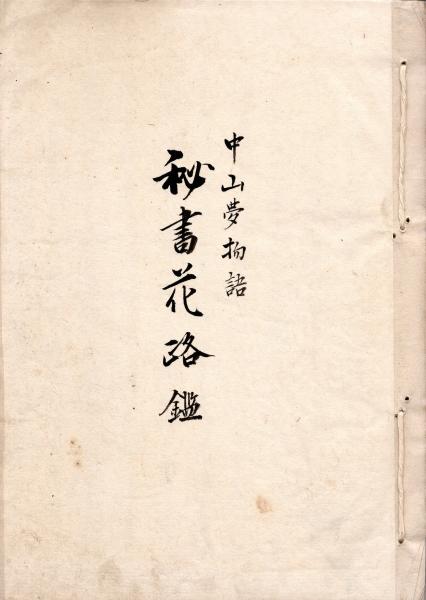 中山夢物語
秘書花路鑑